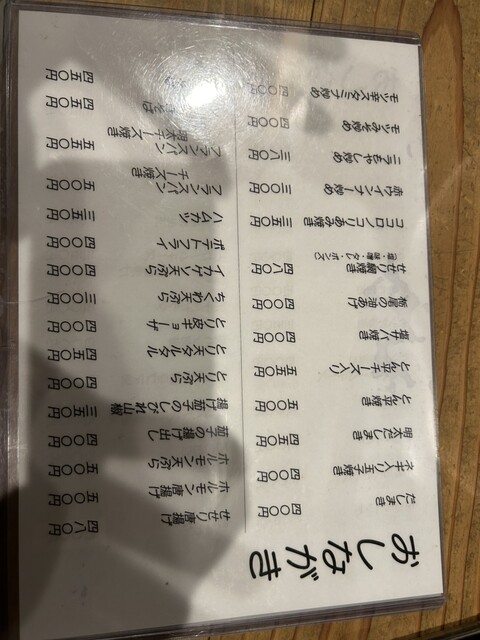 おしながき
だしまき 四〇〇円
ネギ入り玉子焼き 四〇〇円
明太だしまき 四五〇円
とん平焼き 五〇〇円
とん平チーズ入り 五五〇円
塩サバ焼き 四〇〇円
栃尾の油あげ 四〇〇円
せせり 焼き 四八〇円
ココロノコリあみ焼き 三五〇円
赤ウインナ炒め 三〇〇円
ニラもやし炒め 三八〇円
モツみそ炒め 四〇〇円
モツ辛スタミナ炒め 四〇〇円
せせり唐揚げ 四八〇円
ホルモン唐揚げ 五〇〇円
ホルモン天ぷら 五〇〇円
茄子の揚げ出し 四〇〇円
揚げ茄子のしびれ山椒 三五〇円
とり天ぷら 四〇〇円
とり天タルタル 四五〇円
とり皮ギョーザ 四〇〇円
ちくわ天ぷら 三〇〇円
イカゲソ天ぷら 四〇〇円
ポテトフライ 四〇〇円
ハムカツ 三五〇円
フランスパン
チーズ焼き 五〇〇円
フランスパン
明太チーズ焼き 五五〇円
きそば 四五〇円
四五〇円